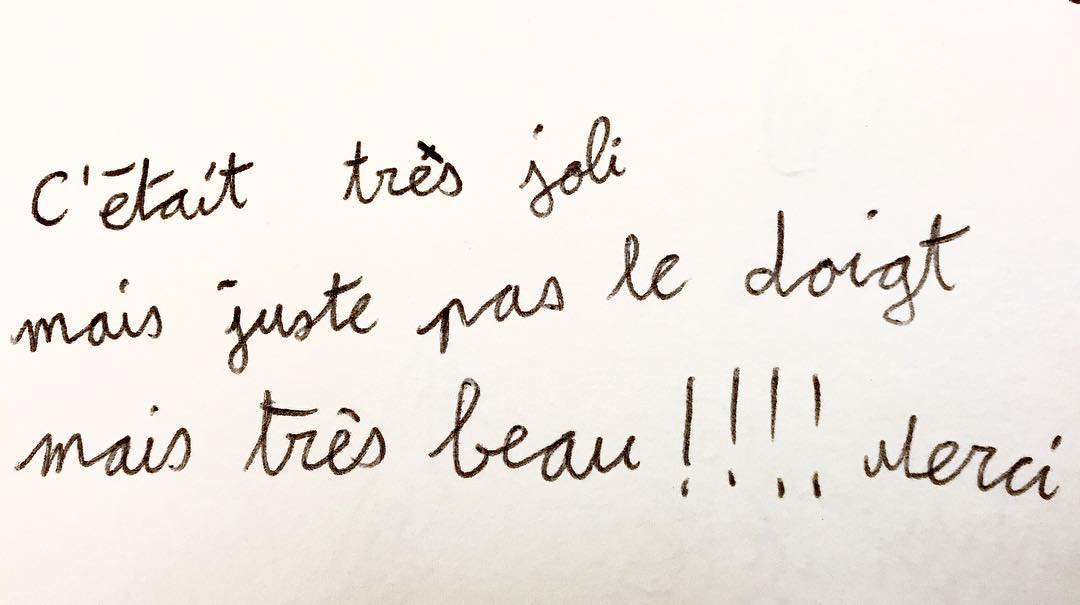 C'était très joli
mais juste pas le doigt
mais très beau !!!! Merci